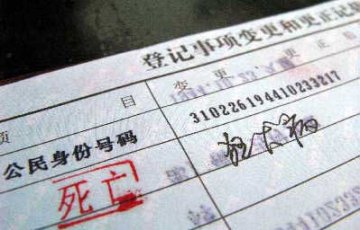 登记事项变更和更正记
项 目 变 更 更 正
公民身份号码 310226194410233217
死亡